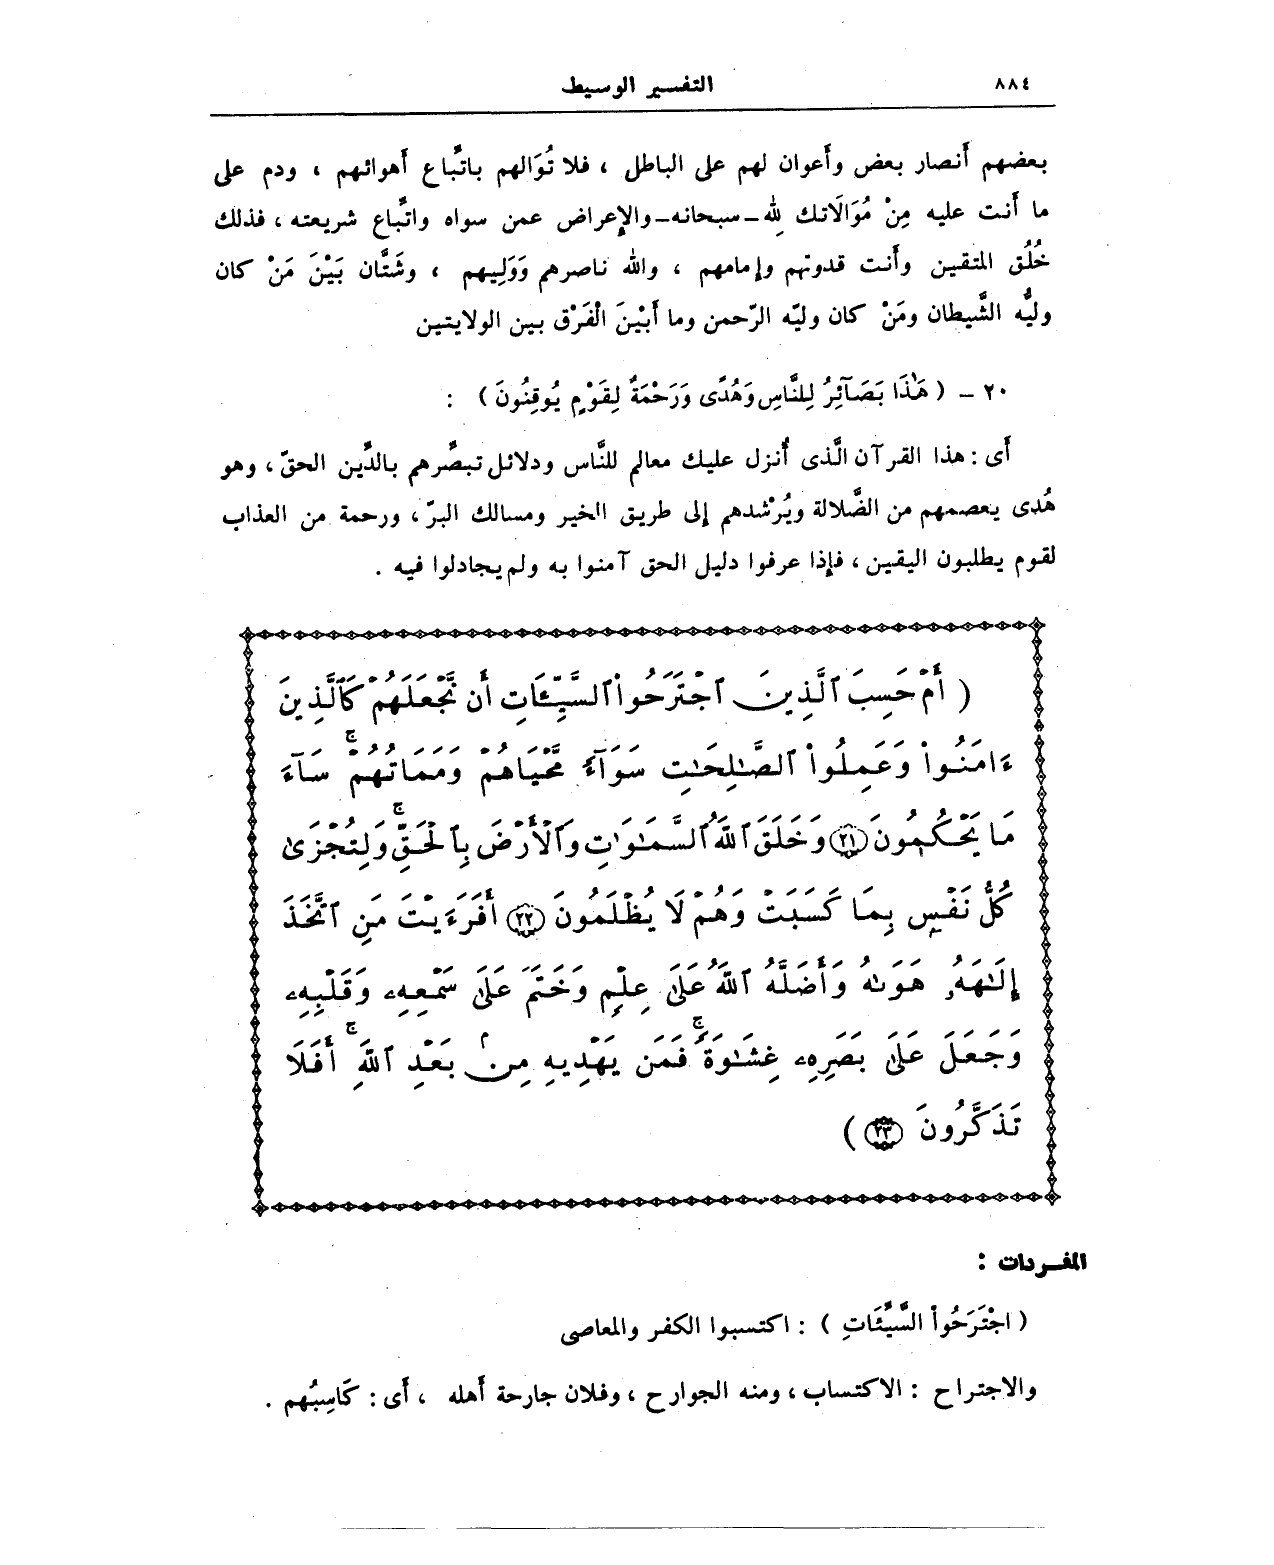 ٨٨٤
التفسير الوسيط
بعضهم أَنصار بعض وأَعوان لهم على الباطل ، فلا تُوَالهم باتِّباع أَهوائهم ، ودم على
ما أَنت عليه مِنْ مُوَالَاتك لِلّه ـ سبحانه ـ والإِعراض عمن سواه واتِّباع شريعته ، فذلك
خُلُق المتقين وأَنت قدوتهم وإِمامهم ، والله ناصرهم وَوَلِيهم ، وشَتَّان بَيْنَ مَنْ كان
وليُّه الشَّيطان ومَنْ كان وليّه الرّحمن وما أَبْيَنَ الْفَرْق بين الولايتين
٢٠ ـ ( هَٰذَا بَصَآئِرُ لِلنَّاسِ وَهُدًى وَرَحْمَةٌ لِقَوْمٍ يُوقِنُونَ ) :
أَى : هذا القرآن الَّذى أُنزل عليك معالم للنَّاس ودلائل تبصِّرهم بالدِّين الحقّ ، وهو
هُدى يعصمهم من الضَّلالة ويُرْشدهم إلى طريق الخير ومسالك البرّ ، ورحمة من العذاب
لقوم يطلبون اليقين ، فإِذا عرفوا دليل الحق آمنوا به ولم يجادلوا فيه .
( أَمْ حَسِبَ ٱلَّذِينَ ٱجْتَرَحُوا۟ ٱلسَّيِّـَٔاتِ أَن نَّجْعَلَهُمْ كَٱلَّذِينَ
ءَامَنُوا۟ وَعَمِلُوا۟ ٱلصَّـٰلِحَـٰتِ سَوَآءً مَّحْيَاهُمْ وَمَمَاتُهُمْ ۚ سَآءَ
مَا يَحْكُمُونَ ﴿٢١﴾ وَخَلَقَ ٱللَّهُ ٱلسَّمَـٰوَٰتِ وَٱلْأَرْضَ بِٱلْحَقِّ ۚ وَلِتُجْزَىٰ
كُلُّ نَفْسٍۭ بِمَا كَسَبَتْ وَهُمْ لَا يُظْلَمُونَ ﴿٢٢﴾ أَفَرَءَيْتَ مَنِ ٱتَّخَذَ
إِلَـٰهَهُۥ هَوَىٰهُ وَأَضَلَّهُ ٱللَّهُ عَلَىٰ عِلْمٍ وَخَتَمَ عَلَىٰ سَمْعِهِۦ وَقَلْبِهِۦ
وَجَعَلَ عَلَىٰ بَصَرِهِۦ غِشَـٰوَةً ۚ فَمَن يَهْدِيهِ مِنۢ بَعْدِ ٱللَّهِ ۚ أَفَلَا
تَذَكَّرُونَ ﴿٢٣﴾ )
المفـردات :
( اجْتَرَحُوا۟ السَّيِّئَاتِ ) : اكتسبوا الكفر والمعاصى
والاجتراح : الاكتساب ، ومنه الجوارح ، وفلان جارحة أَهله ، أَى : كَاسِبُهم .